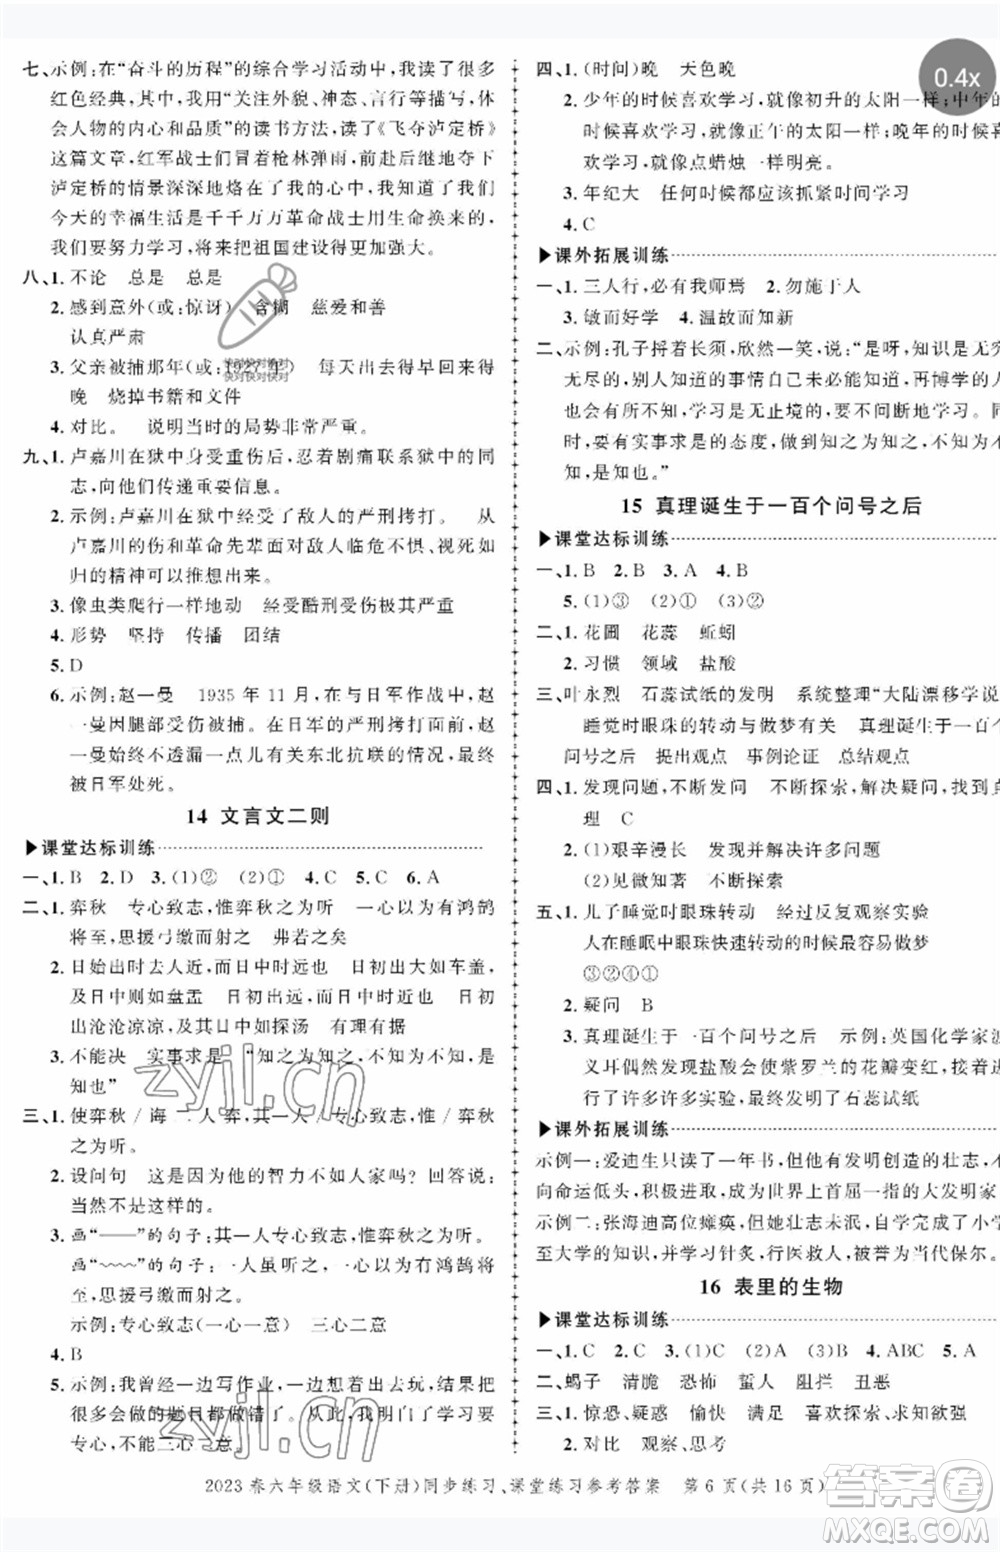 七、示例:在“奋斗的历程”的综合学习活动中,我读了很多
红色经典,其中,我用“关注外貌、神态、言行等描写,体
会人物的内心和品质”的读书方法,读了《飞夺泸定桥》
这篇文章,红军战士们冒着枪林弹雨,前赴后继地夺下
泸定桥的情景深深地烙在了我的脑海中,我知道了我们
今天的幸福生活是千千万万革命战士用生命换来的,
我们要努力学习,将来把祖国建设得更加强大。
八、1. 不论 总是 总是
2. 感到意外(或:惊讶) 含糊 慈爱和善
认真严肃
3. 父亲被捕那年(或:1927年) 每天出去得早早回来得
晚 烧掉书籍和文件
4. 对比。 说明当时的局势非常严重。
九、1. 卢嘉川在狱中身受重伤后,忍着剧痛联系狱中的同
志,向他们传递重要信息。
2. 示例:卢嘉川在狱中经受了敌人的严刑拷打。 从
卢嘉川的革命先辈面对敌人临危不惧、视死如
归的精神中可以推想出来。
3. 像虫类爬行一样地动 经受酷刑负伤极其严重
4. 形势 坚持 传播 团结
5. D
6. 示例:赵一曼 1935 年 11 月,在与日军作战中,赵
一曼因腿部受伤被捕。在日军的严刑拷打面前,赵
一曼始终不透漏一点儿有关东北抗联的情况,最终
被日军处死。
14 文言文二则
▶课堂达标训练
一、1. B 2. D 3. (1)② (2)① 4. C 5. C 6. A
二、1. 弈秋 专心致志,惟弈秋之为听 一心以为有鸿鹄
将至,思援弓缴而射之 弗若之矣
2. 日始出时去人近,而日中时远 日初出大如车盖,
及日中则如盘盂 日初出远,而日中时近 日初
出沧沧凉凉,及其日中如探汤 有理有据
3. 不能决 实事求是 “知之为知之,不知为不知,是
知也”
三、1. 使弈秋/诲二人弈,其一人/专心致志,惟/弈秋
之为听。
2. 设问句 这是因为他的智力不如人家吗?回答说:
当然不是这样的。
3. 画“——”的句子:其一人专心致志,惟弈秋之为听。
画“﹏﹏”的句子:一人虽听之,一心以为有鸿鹄将至,
思援弓缴而射之。
示例:专心致志(一心一意) 三心二意
4. B
5. 示例:我曾经一边写作业,一边想着出去玩,结果
做的题目都做错了。我从中明白了学习要
专心,不能三心二意。
四、1. (时间)晚 天色晚
2. 少年的时候喜欢学习,就像初升的太阳一样;中年的
时候喜欢学习,就像正午的太阳一样;晚年的时候喜
欢学习,就像点蜡烛一样明亮。
3. 年纪大 任何时候都应该抓紧时间学习
4. C
▶课外拓展训练
一、1. 三人行,必有我师焉 2. 勿施于人
3. 敏而好学 4. 温故而知新
二、示例:孔子捋着长须,欣然一笑,说:“是呀,知识是无穷
无尽的,你们知道的事情自己未必能知道,再博学的人
也会有所不知,学习是无止境的,要不间断地学习。同
时,要有实事求是的态度,做到知之为知之,不知为不
知,是知也。”
15 真理诞生于一百个问号之后
▶课堂达标训练
一、1. B 2. B 3. A 4. B
5. (1)③ (2)① (3)②
二、1. 花圃 花蕊 蚯蚓
2. 习惯 领域 盐酸
三、叶永烈 石蕊试纸的发明 系统整理“大陆漂移学说
睡觉时眼珠的转动与做梦有关 真理诞生于一百个
问号之后 提出观点 事例论证 总结观点
四、1. 发现问题,不断发问 追根求源,解决疑问,找到真
理 C
2. (1)艰辛漫长 发现并解决许多问题
(2)见微知著 不断探索
五、1. 儿子睡觉时眼珠转动 经过反复观察实验
人在睡眠中眼珠快速转动的时候最容易做梦
③②④①
2. 疑问 B
3. 真理诞生于一百个问号之后 示例:英国化学家波
义耳偶然发现盐酸会使紫罗兰的花瓣变红,后来进
行了许多许多实验,最终发明了石蕊试纸
▶课外拓展训练
示例一:爱迪生只读了一年书,但他有发明创造的壮志,不
向命运低头,积极进取,成为世界上首屈一指的大发明家
示例二:张海迪高位瘫痪,但她壮志未泯,自学了小学
至大学的知识,并学习针灸,行医救人,被誉为当代保尔。
16 表里的生物
▶课堂达标训练
一、1. C 2. C 3. (1)C (2)A (3)B 4. ABC 5. A
二、蝎子 清脆 恐怖 蜇人 阻拦 丑恶
三、1. 惊恐、疑惑 愉快 满足 喜欢探索、求知欲强
2. 对比 观察、思考
2023 春六年级语文(下册)同步练习、课堂练习参考答案 第 6 页(共 16 页)
0.4x
快对快对快对
快对快对快对
zyjl.cn
zyjl.cn
答案圈
MXQE.COM